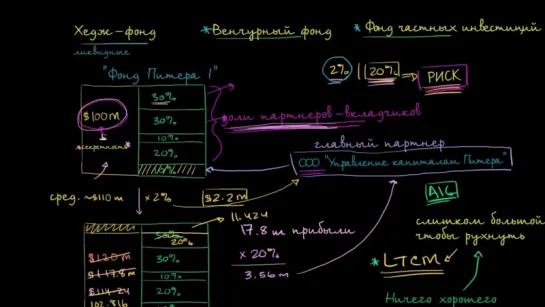 Хедж-фонд
*Венчурный фонд
*Фонд частных инвестиций
ликвидные
"Фонд Питера I"
2% | 20% → РИСК
30%
$100m
30%
доли партнеров-вкладчиков
*секретность*
10%
20%
10%
главный партнер
ООО "Управление капиталом Питера"
сред. ~$110 m
× 2%
$2.2 m
AIG
11.424
слишком большой
чтобы рухнуть
17.8 m прибыли
× 20%
3.56 m
20%
$120m
30%
$117.8m
30%
$114.24
10%
102.816
20%
*LTCM
Ничего хорошего